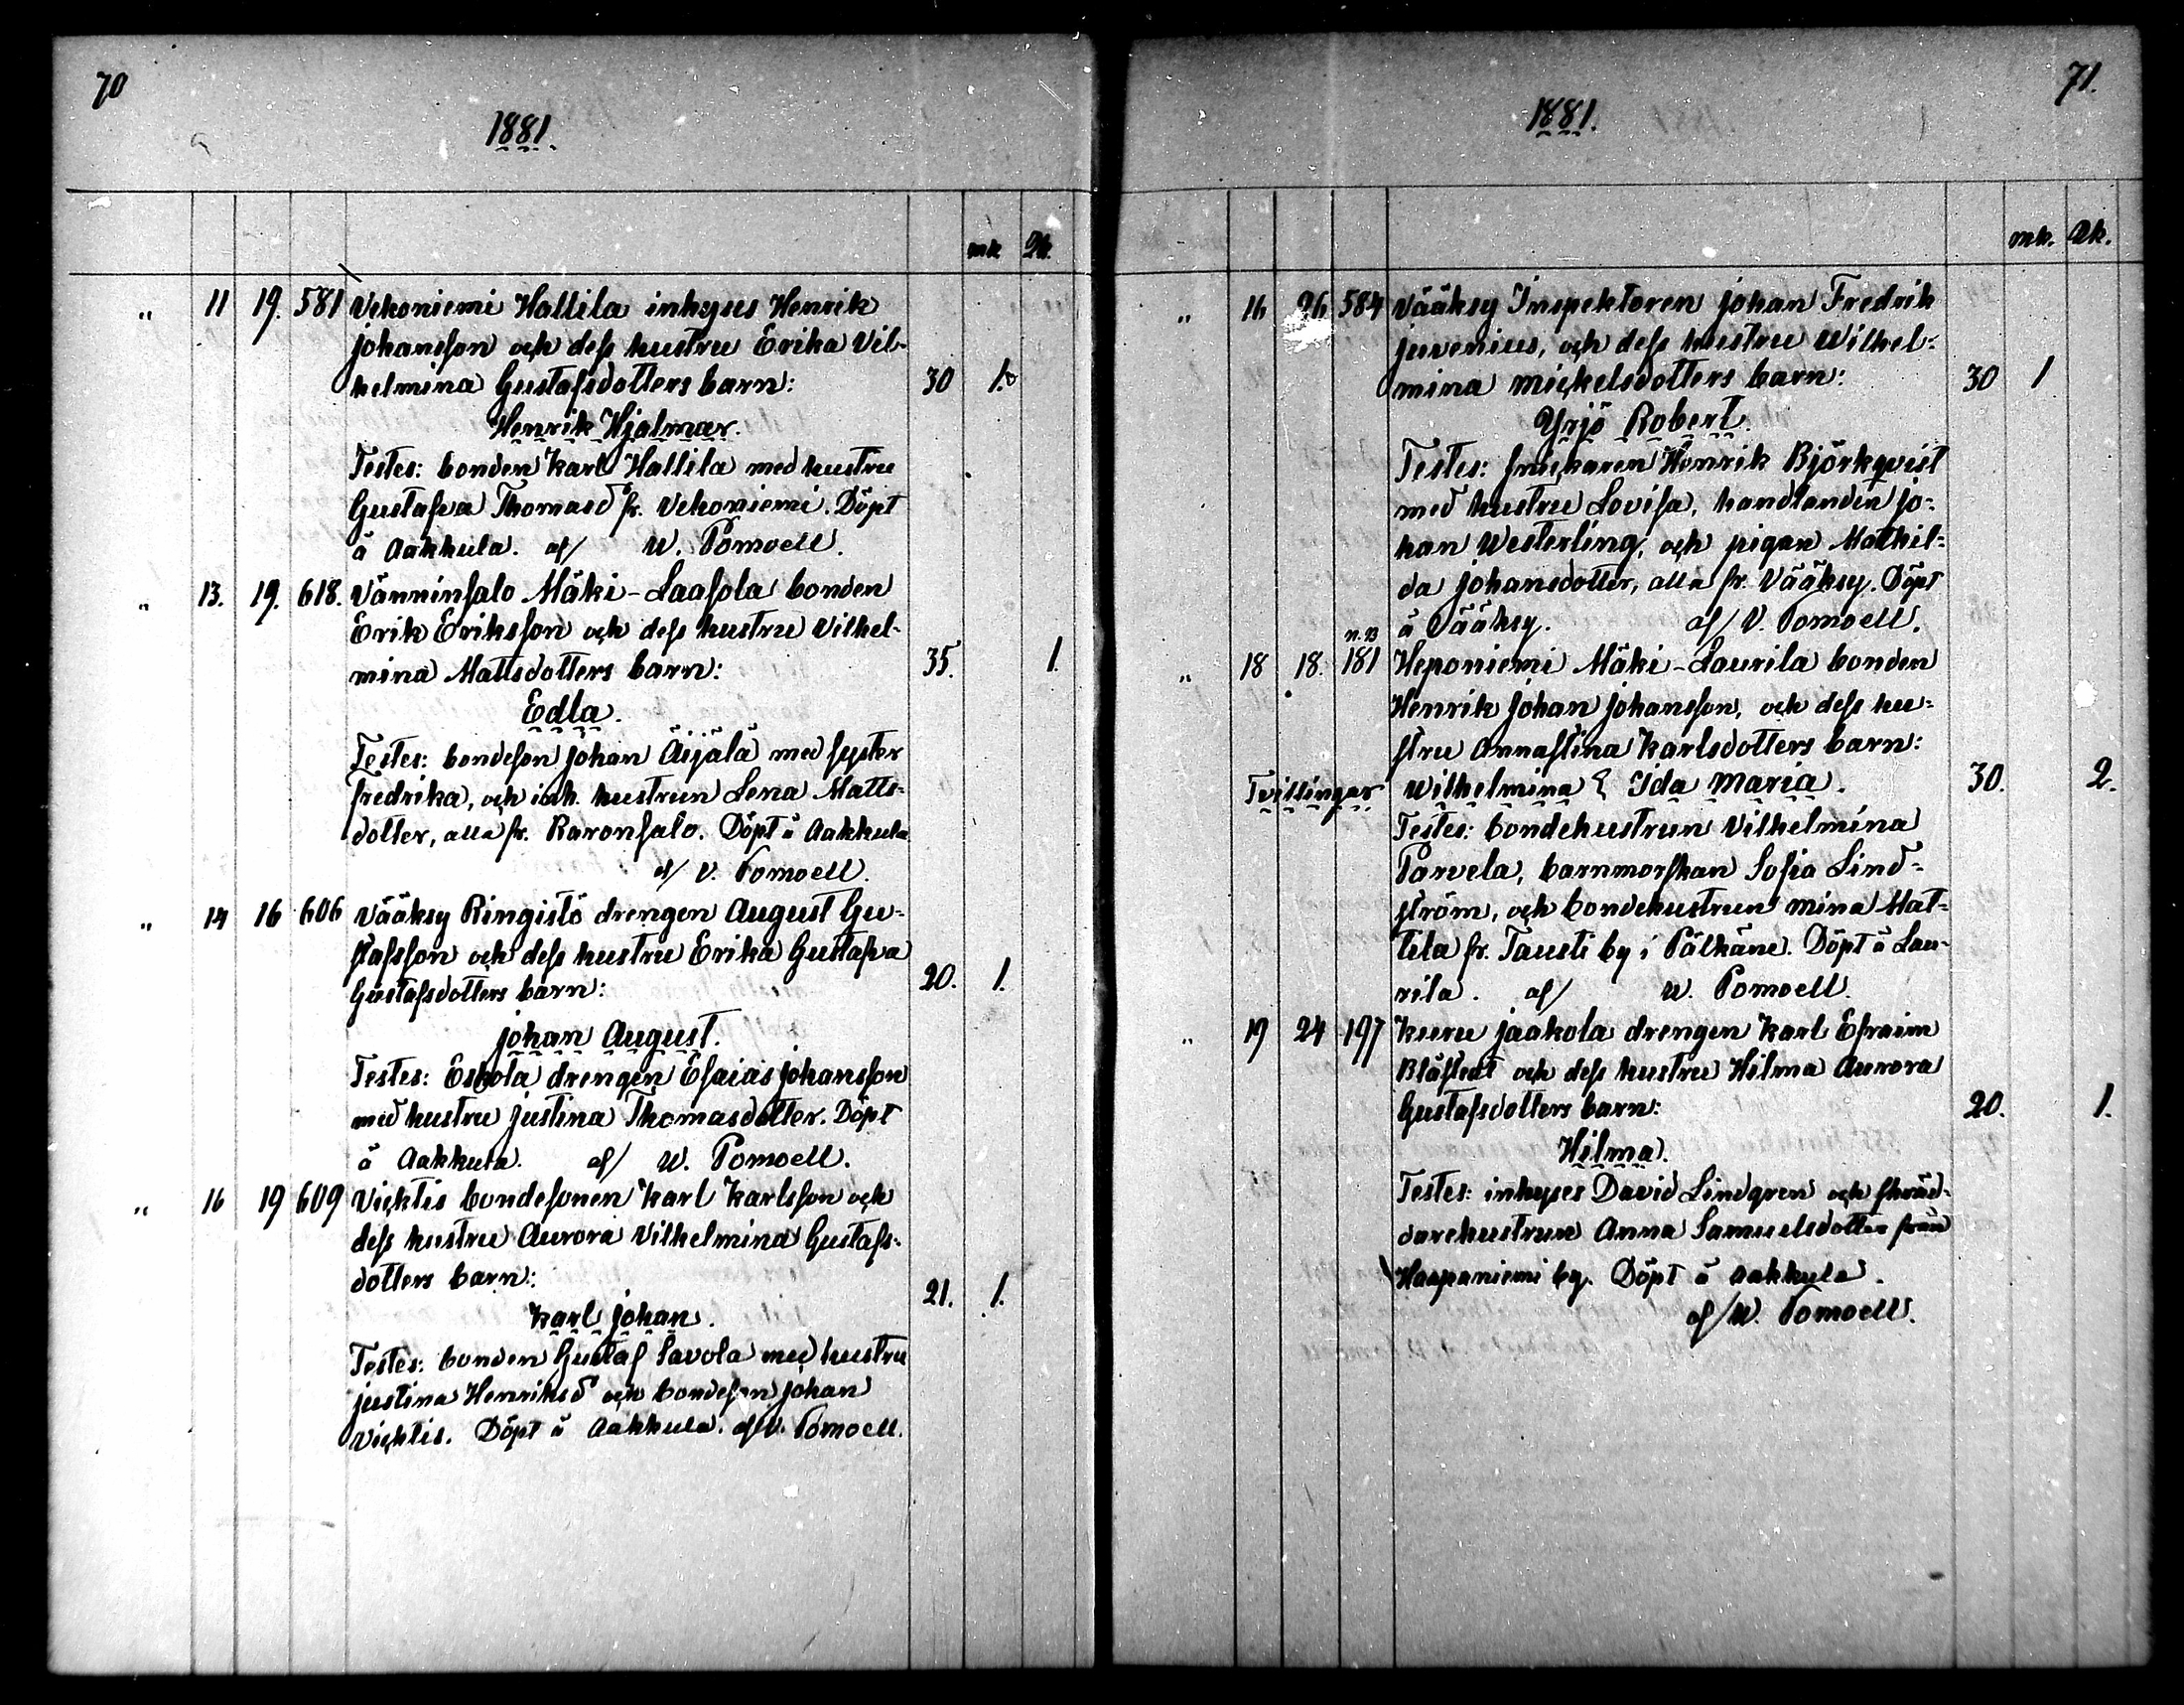 70
1881.
mk Qk.
" 11 19. 581 Vehoniemi Hallila inhyses Henrik
Johansson och dess hustru Erika Vil-
helmina Gustafsdotters barn: 30 1.
Henrik Hjalmar.
Testes: bonden Karl Hallila med hustru
Gustafva Thomasd fr. Vehoniemi. Döpt
å Aakkula. af/ W. Pomoell.
" 13. 19. 618. Vänninsalo Mäki-Laasola bonden
Erik Eriksson och dess hustru Vilhel-
mina Mattsdotters barn: 35. 1.
Edla.
Testes: bondeson Johan Äijälä med syster
Fredrika, och inh. hustrun Lena Matts-
dotter, alla fr. Raronsalo. Döpt å Aakkula
af/ V. Pomoell.
" 14 16 606 Vääksy Ringistö drengen August Gu-
stafsson och dess hustru Erika Gustafva
Gustafsdotters barn: 20. 1.
Johan August.
Testes: Eskola drengen Esaias Johansson
med hustru Justina Thomasdotter. Döpt
å Aakkula. af/ W. Pomoell.
" 16 19 609 Vicktis bondesonen Karl Karlsson och
dess hustru Aurora Vilhelmina Gustafs-
dotters barn: 21. 1.
Karl Johan.
Testes: bonden Gustaf Savola med hustru
Justina Henriksd och bondeson Johan
Vicktis. Döpt å Aakkula. af V. Pomoell.
71.
1881.
mk. Qk.
" 16 26 584 Vääksy Inspektoren Johan Fredrik
Juvenius, och dess hustru Wilhel-
mina Mickelsdotters barn: 30 1
Yrjö Robert.
Testes: snickaren Henrik Björkqvist
med hustru Lovisa, handlanden Jo-
han Westerling, och pigan Mathil-
da Johansdotter, alla fr. Vääksy. Döpt
å Vääksy. af/ V. Pomoell.
" 18 18. 181 Heponiemi Mäki-Laurila bonden
Henrik Johan Johansson, och dess hu-
stru Annastina Karlsdotters barn:
Tvillingar Wilhelmina & Ida Maria. 30. 2.
Testes: bondehustrun Vilhelmina
Parvela, barnmorskan Sofia Lind-
ström, och bondehustrun Mina Mat-
tila fr. Tausti by i Pälkäne. Döpt å Lau-
rila. af/ W. Pomoell.
" 19 24 197 Kuru Jaakola drengen Karl Efraim
Blåfield och dess hustru Hilma Aurora
Gustafsdotters barn: 20. 1.
Hilma.
Testes: inhyses David Lindgren och skräd-
darehustrun Anna Samuelsdotter från
Haapaniemi by. Döpt å Aakkula.
af/ W. Pomoell.